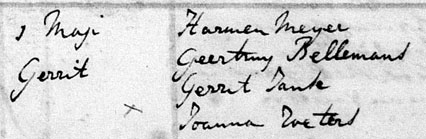 1 Maji Harmen Meyer
Gerrit Geertruy Bellemans
Gerrit Tank
Joanna Roeters